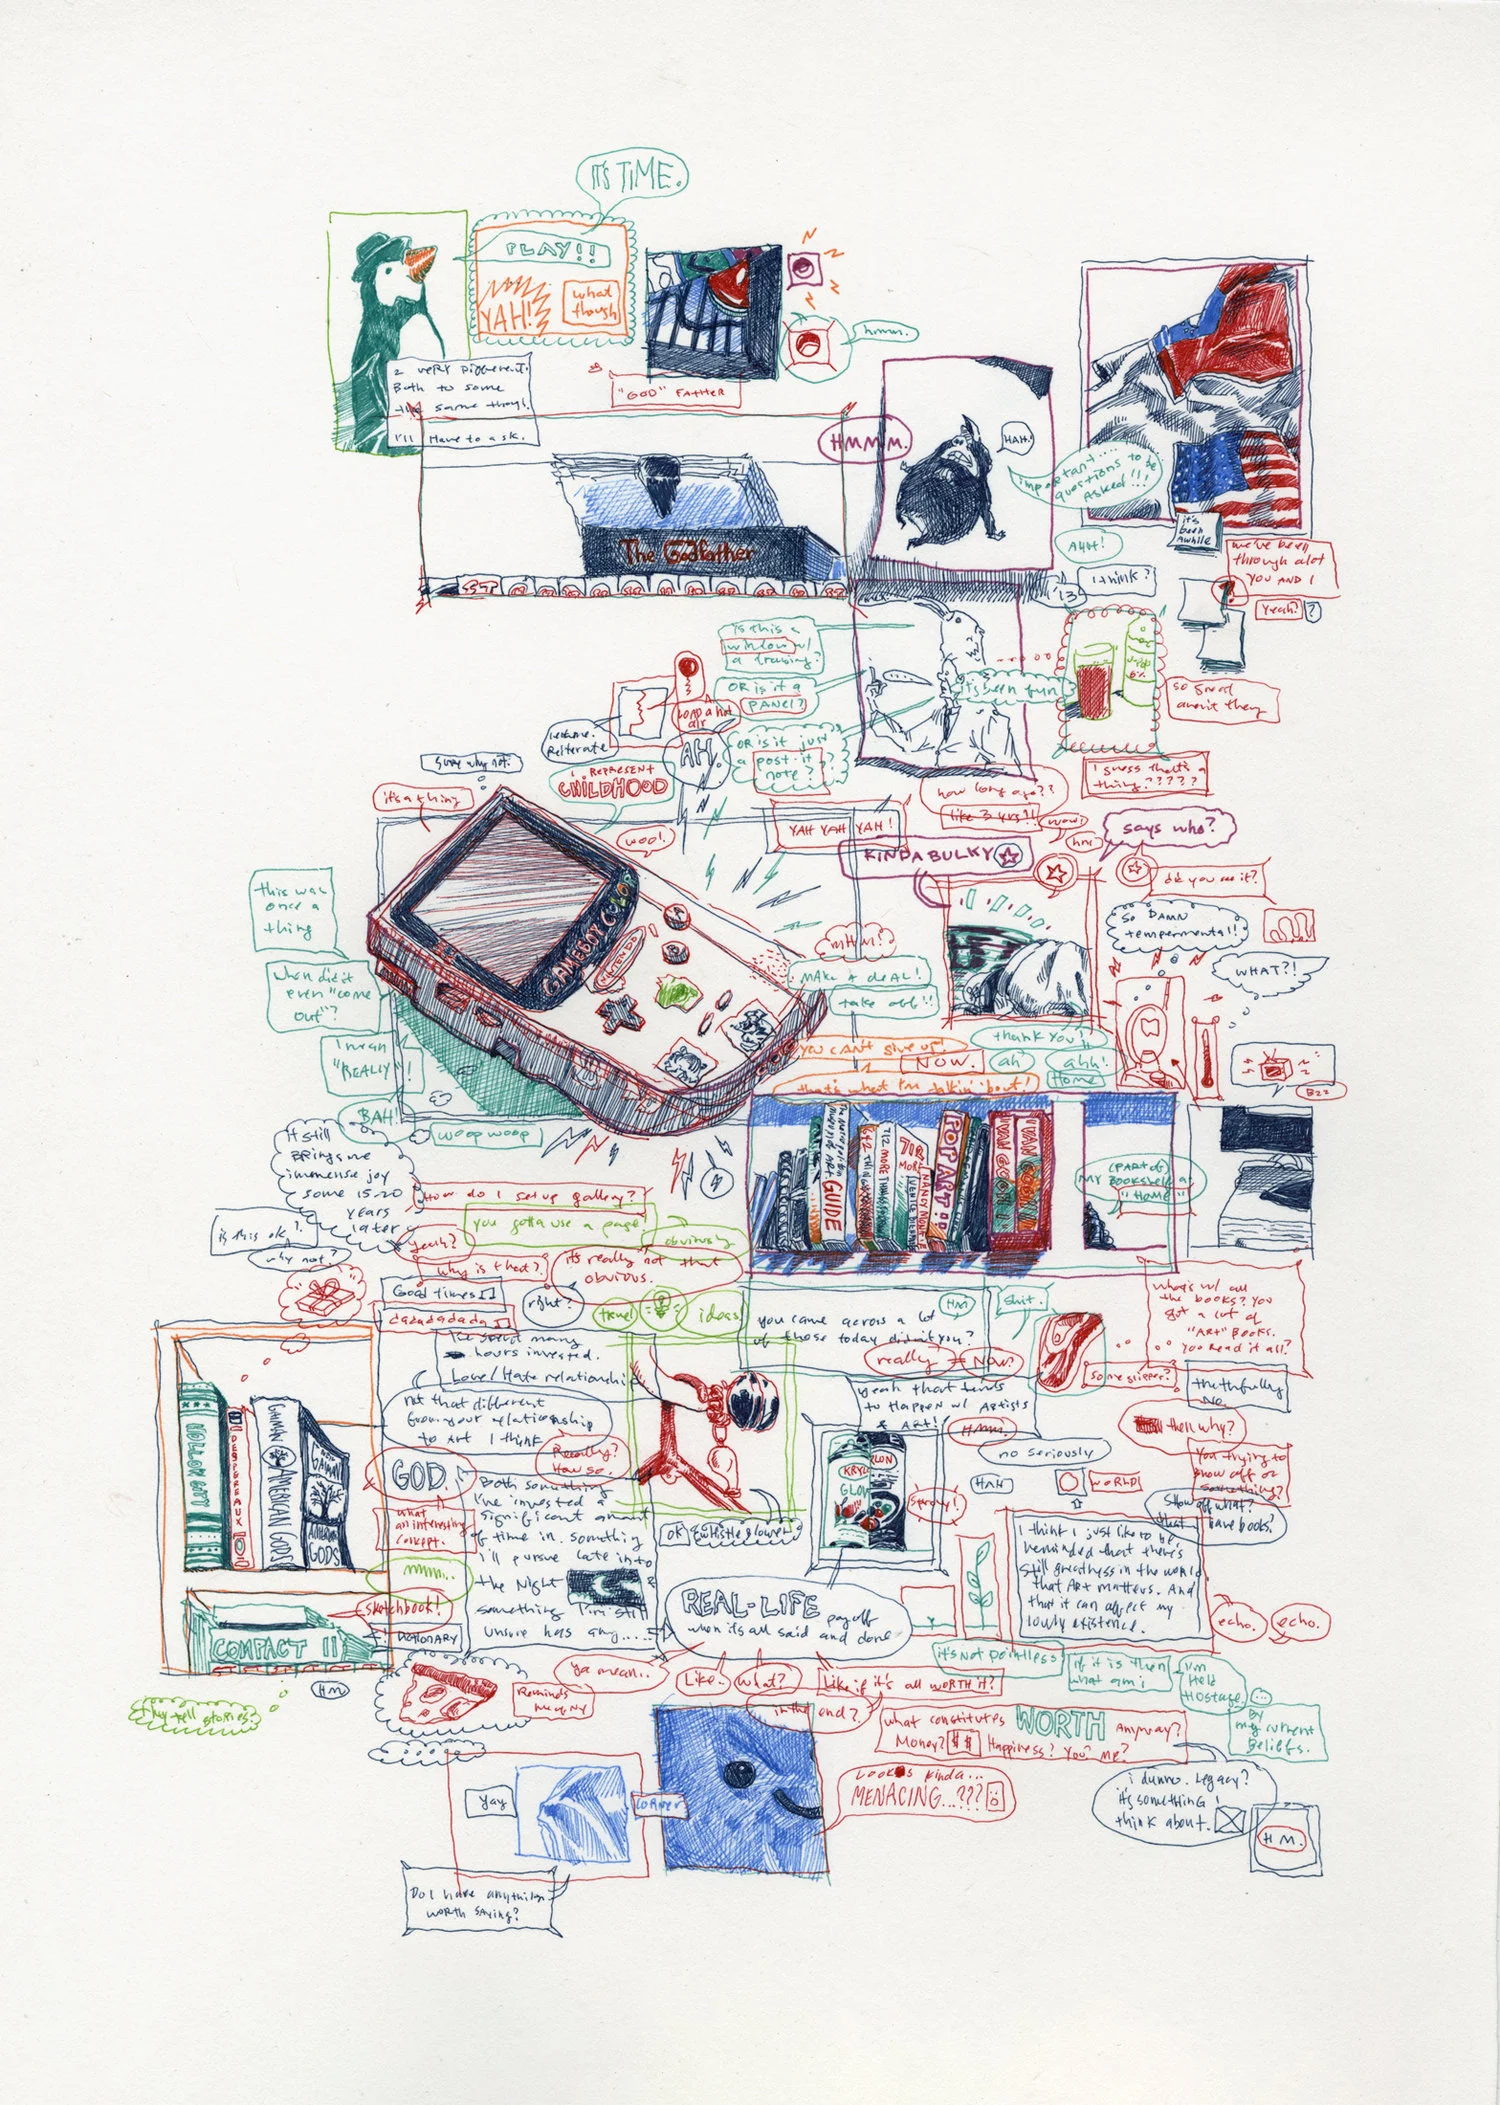 IT'S TIME.
PLAY!!
YAH!
what though
hmm.
2 very different.
Both to some
same though.
I'll Have to ask.
"GOD" FATHER
HMMM.
HAH!
important....
questions to be
asked!!!
The Godfather
it's
been
awhile
we've been
through alot
YOU AND I
Yeah?
?
AHH!
I think?
'13
is this a
window w/
a drawing?
OR is it a
PANEL?
it's been fun
so great
aren't they
LOAD a hot
air
Reiterate
AH.
OR is it just
a post-it
note?
I guess that's a
thing?????
sure why not.
I REPRESENT
CHILDHOOD
it's a thing
how long ago??
like 3 yrs?!
wow!
hm
says who?
woo!
YAH YAH YAH!
KINDA BULKY
did you see it?
this was
once a
thing
GAMEBOY COLOR
NINTENDO
A
B
mhm?
so DAMN
tempermental!!
MAKE A DEAL!
take off!!
WHAT?!
When did it
even "come
out"?
I mean
"REALLY"!
YOU CAN'T give up!
NOW.
thank you!
ah
ahh!
Home
that's what I'm talkin' 'bout!
Bzz
BAH!
woop woop
it still
BRINGS me
immense joy
some 15-20
years
later
GUIDE
642 THINGS
712 MORE THINGS
712
MORE
POP ART
IVAN
IVAN
(PART of)
my BOOKSHELF at
"HOME"
How do I set up gallery?
you gotta use a page!
obviously
is this ok?
why not?
Yeah?
why is that?
it's really not that
obvious.
Good times
right?
true!
ideas!
dadadadada
HM
you came across a lot
of those today didn't you?
really
NOW?
shit.
Who's w/ all
the books? You
got a lot of
"ART" BOOKS.
You Read it all?
I've spent many
hours invested.
Love/Hate relationship
not that different
from your relationship
to art I think
Really?
How so.
yeah that tends
to Happen w/ Artists
& Art!
Hmm.
no seriously
some slipper?
truthfully
No.
then why?
You trying to
show off or
something?
GOD.
what
an interesting
concept.
Both something
I've invested a
significant amount
of time in. something
I'll pursue late into
the Night
something I'm still
unsure has any....
KRYLON
GLOW
Spray!
HAH
WORLD!
Show off what?
OK
whistle blower?
I think I just like to be
reminded that there's
still greatness in the world
that Art matters. And
that it can affect my
lowly existence.
echo.
echo.
GAIMAN
AMERICAN GODS
GAIMAN
GODS
mmm..
sketchbook!
DICTIONARY
COMPACT II
HM
they tell stories?
REAL-LIFE pay off
when its all said and done
ya mean..
Like..
what?
Like if it's all WORTH it?
in the end?
it's not pointless
if it is then
what am i
I'm
Held
Hostage
...
By
my current
Beliefs.
Reminds
me of NY
what constitutes WORTH Anyway?
Money? $$ Happiness? You? ME?
Looks kinda...
MENACING...???
i dunno. Legacy?
it's something
think about.
HM.
yay
CORNER
Do I have anything
worth saying?